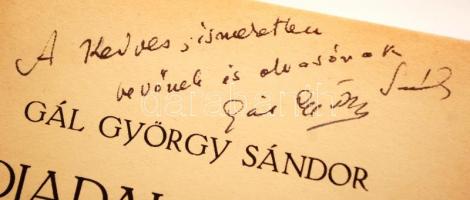 A Kedves, ismeretlen
vevőnek és olvasónak
Gál György Sándor
GÁL GYÖRGY SÁNDOR
DIADAL